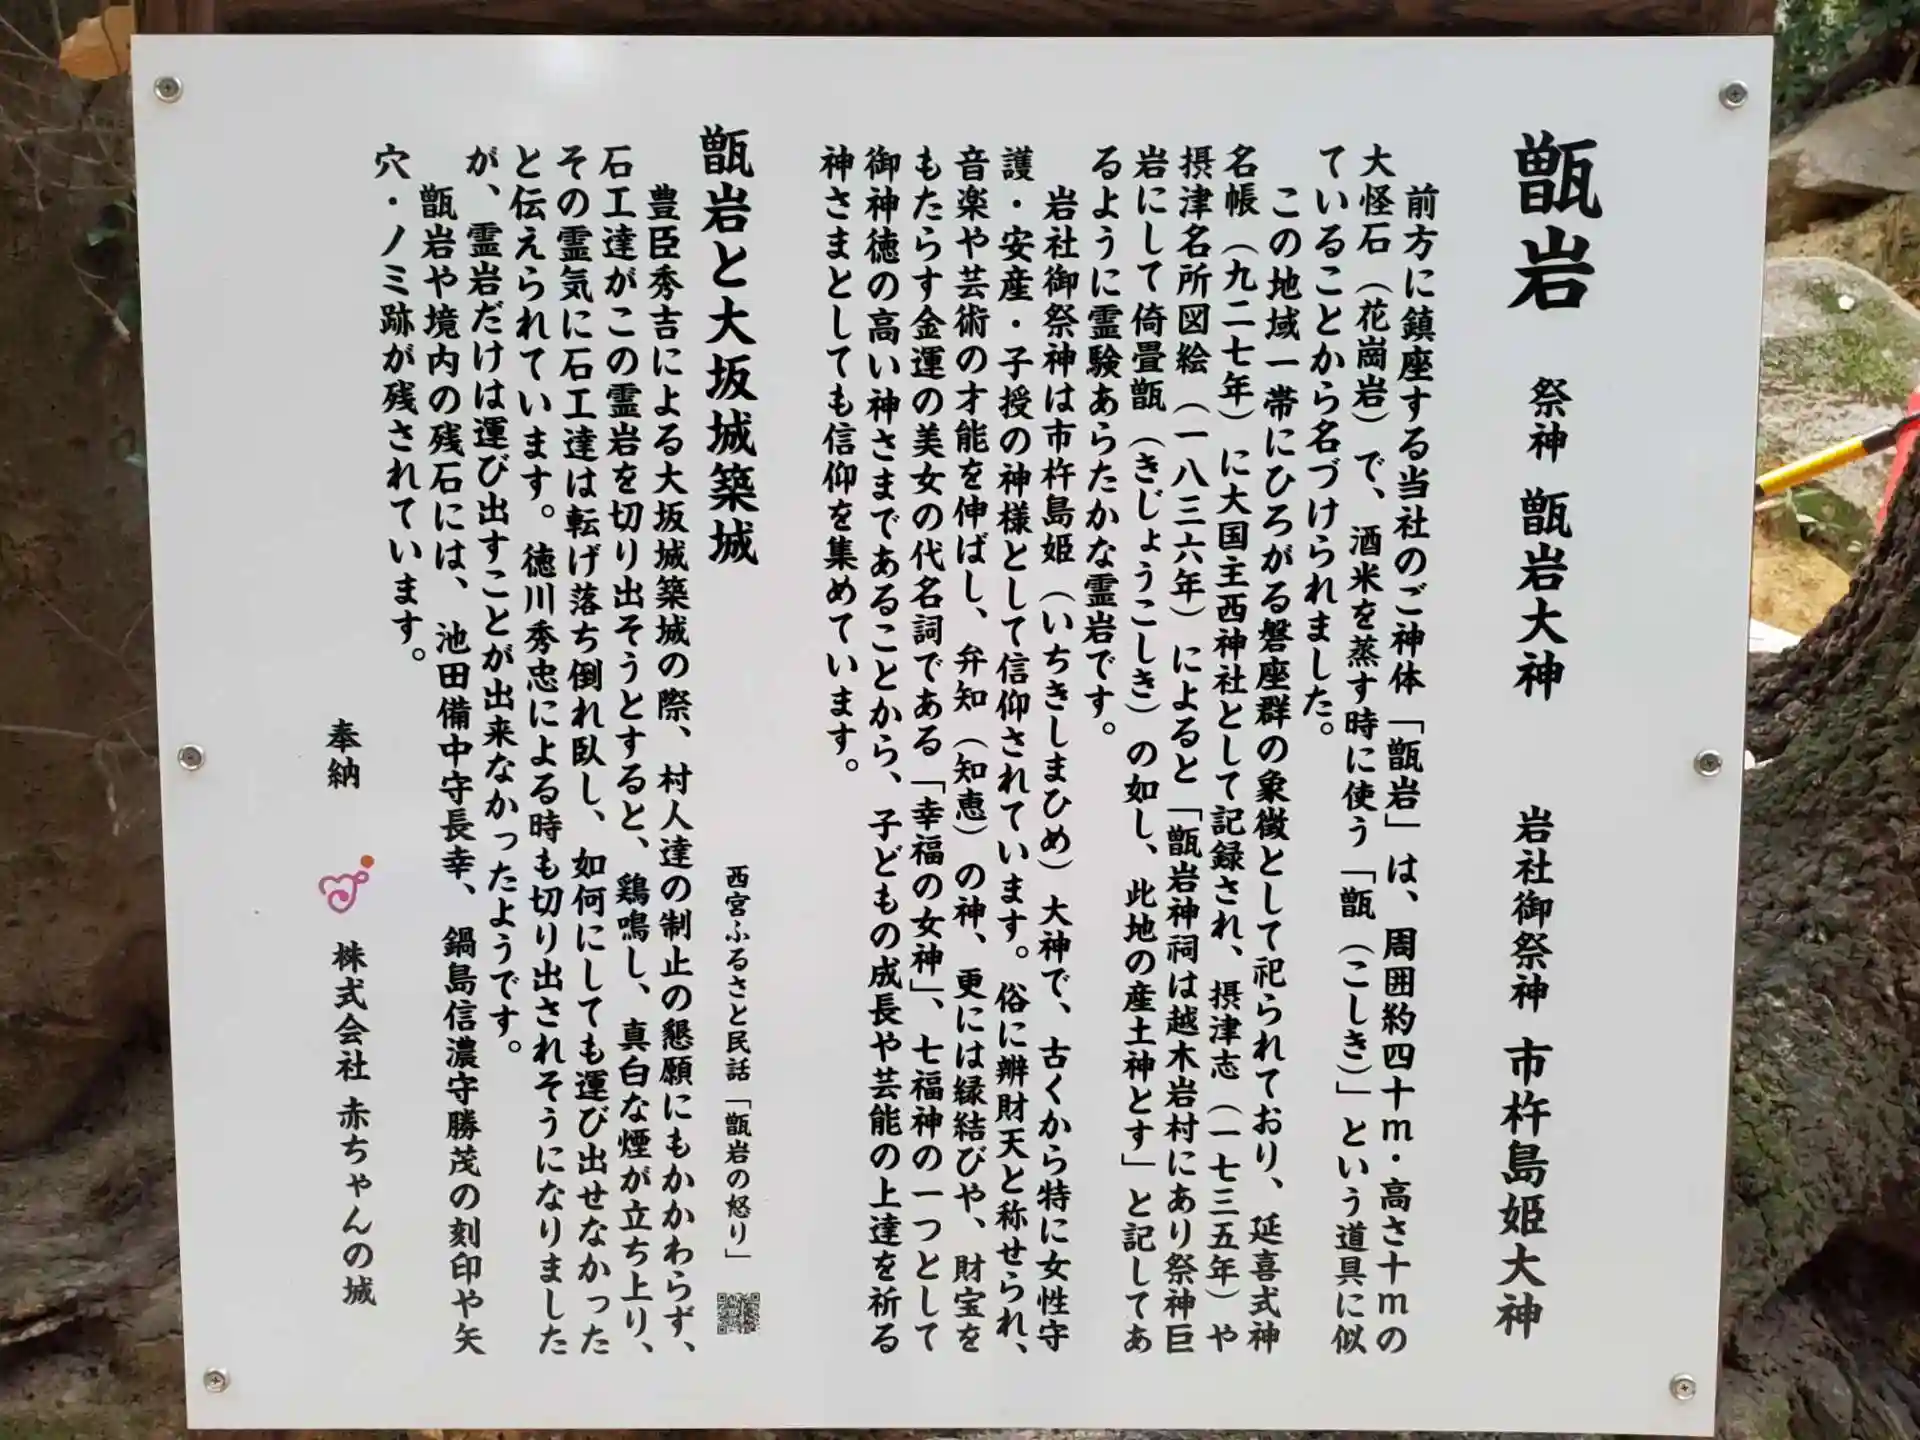 甑岩　祭神 甑岩大神　岩社御祭神 市杵島姫大神
前方に鎮座する当社のご神体「甑岩」は、周囲約四十ｍ・高さ十ｍの
大怪石（花崗岩）で、酒米を蒸す時に使う「甑（こしき）」という道具に似
ていることから名づけられました。
この地域一帯にひろがる磐座群の象徴として祀られており、延喜式神
名帳（九二七年）に大国主西神社として記録され、摂津志（一七三五年）や
摂津名所図絵（一八三六年）によると「甑岩神祠は越木岩村にあり祭神巨
岩にして倚畳甑（きじょうこしき）の如し、此地の産土神とす」と記してあ
るように霊験あらたかな霊岩です。
岩社御祭神は市杵島姫（いちきしまひめ）大神で、古くから特に女性守
護・安産・子授の神様として信仰されています。俗に辨財天と称せられ、
音楽や芸術の才能を伸ばし、弁知（知恵）の神、更には縁結びや、財宝を
もたらす金運の美女の代名詞である「幸福の女神」、七福神の一つとして
御神徳の高い神さまであることから、子どもの成長や芸能の上達を祈る
神さまとしても信仰を集めています。
甑岩と大坂城築城
西宮ふるさと民話「甑岩の怒り」
豊臣秀吉による大坂城築城の際、村人達の制止の懇願にもかかわらず、
石工達がこの霊岩を切り出そうとすると、鶏鳴し、真白な煙が立ち上り、
その霊気に石工達は転げ落ち倒れ臥し、如何にしても運び出せなかった
と伝えられています。徳川秀忠による時も切り出されそうになりました
が、霊岩だけは運び出すことが出来なかったようです。
甑岩や境内の残石には、池田備中守長幸、鍋島信濃守勝茂の刻印や矢
穴・ノミ跡が残されています。
奉納　株式会社 赤ちゃんの城